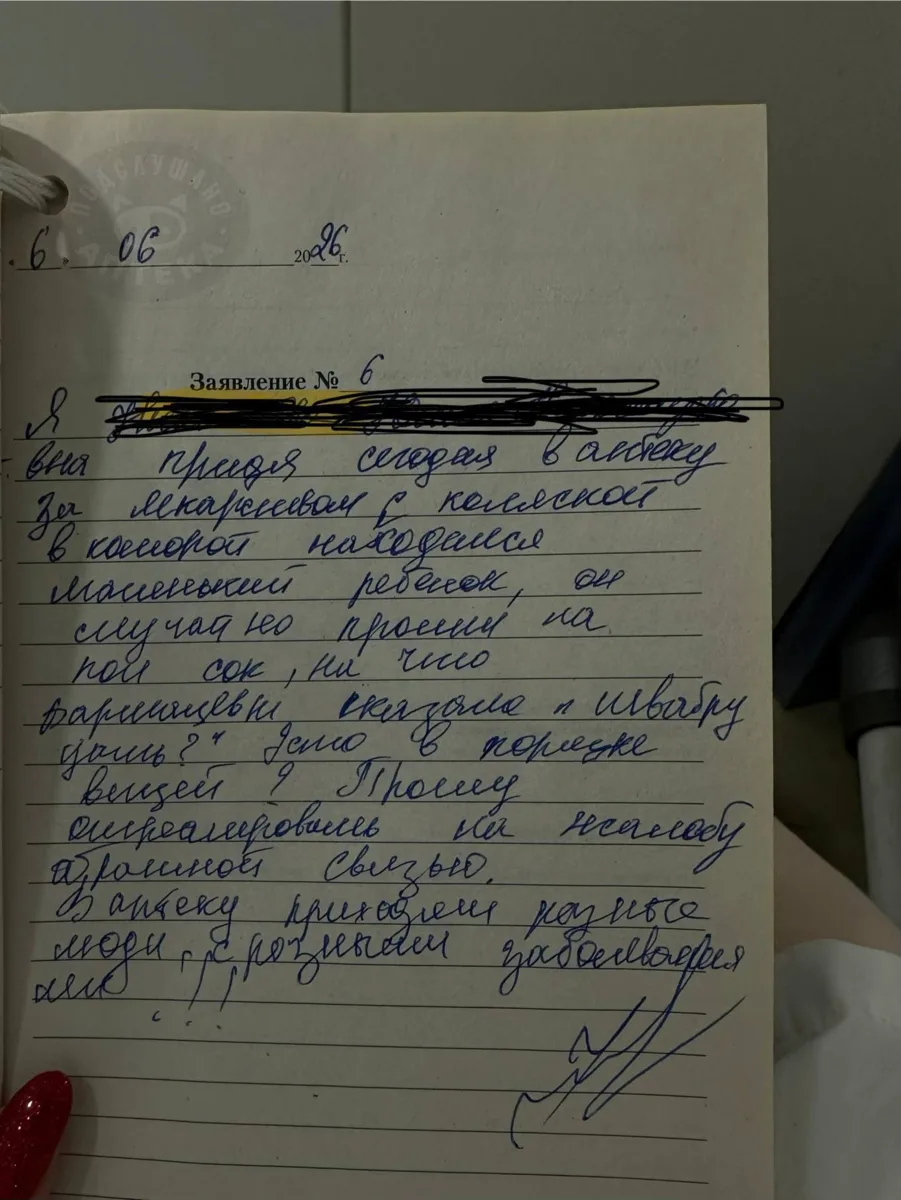 ПОДСЛУШАНО
АПТЕКА
6. 06 2026г.
Заявление № 6
Я
вна придя сегодня в аптеку
за лекарством с коляской
в которой находился
маленький ребенок, он
случайно пролил на
пол сок, на что
фармацевт сказала "швабру
дать?" Это в порядке
вещей? Прошу
отреагировать на жалобу
обратной связью.
В аптеку приходят разные
люди, с разными заболевания
ми !!!